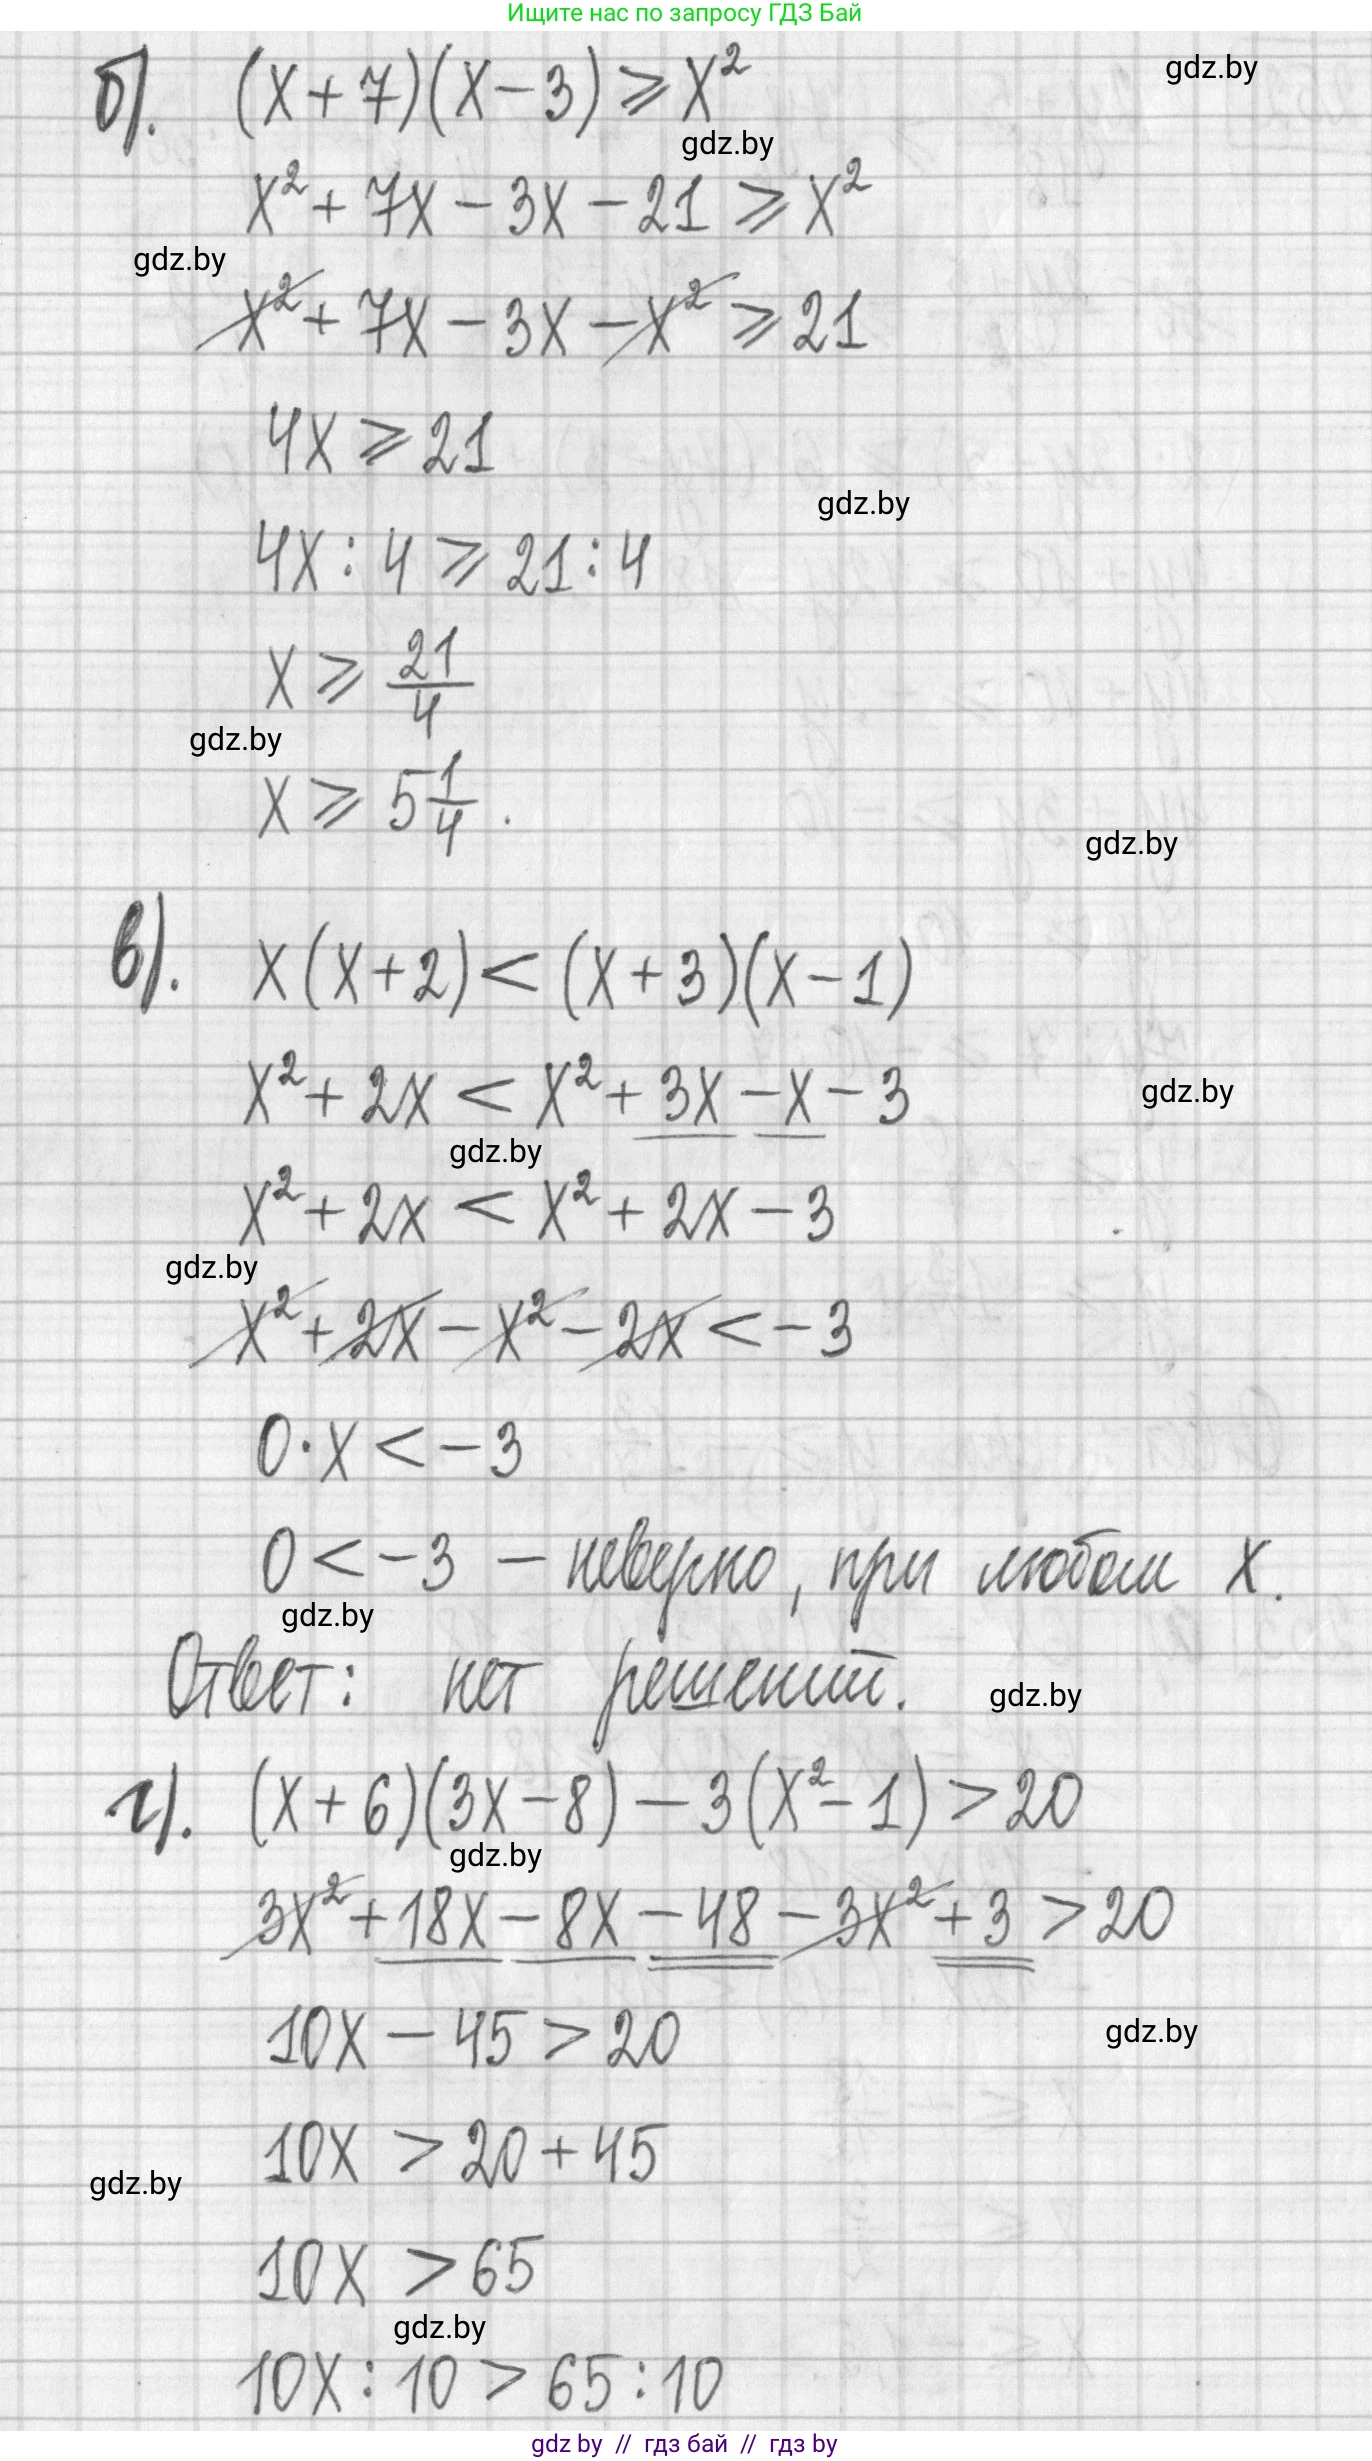 Ищите нас по запросу ГДЗ Бай
gdz.by
б). (x+7)(x-3)⩾x²
gdz.by
x²+7x-3x-21⩾x²
gdz.by
x²+7x-3x-x²⩾21
4x⩾21
gdz.by
4x:4⩾21:4
x⩾21/4
gdz.by
x⩾5 1/4.
gdz.by
в). x(x+2)<(x+3)(x-1)
x²+2x<x²+3x-x-3
gdz.by
gdz.by
x²+2x<x²+2x-3
gdz.by
x²+2x-x²-2x<-3
0·x<-3
0<-3 - неверно, при любом x.
gdz.by
Ответ: нет решений.
gdz.by
г). (x+6)(3x-8)-3(x²-1)>20
gdz.by
3x²+18x-8x-48-3x²+3>20
10x-45>20
gdz.by
10x>20+45
gdz.by
10x>65
gdz.by
10x:10>65:10
gdz by // гдз бай // гдз by